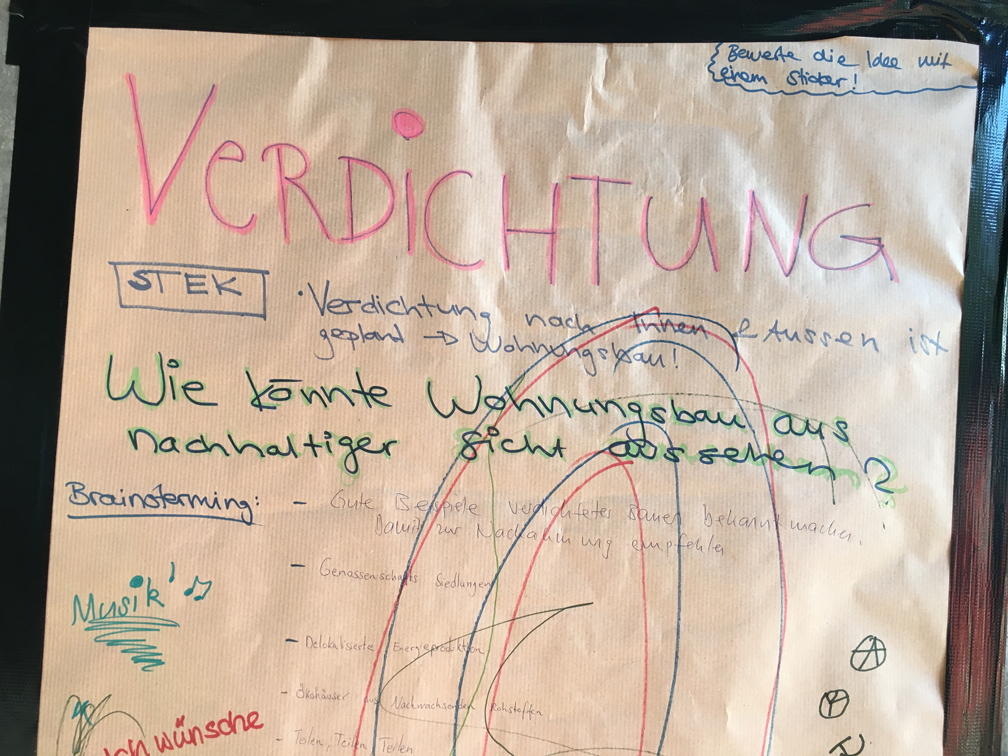 Bewerte die Idee mit
einem Sticker!
VERDICHTUNG
STEK
· Verdichtung nach Innen & Aussen ist
geplant → Wohnungsbau!
Wie könnte Wohnungsbau aus
nachhaltiger sicht aussehen?
Brainsterming:
– Gute Beispiele verdichtetes Bauen bekannt machen.
Damit zur Nachahmung empfehlen
– Genossenschafts Siedlungen
Musik
– Delokalisierte Energieproduktion
– Ökohäuser aus Nachwachsenden Rohstoffen
Ich wünsche
– Teilen, Teilen Teilen